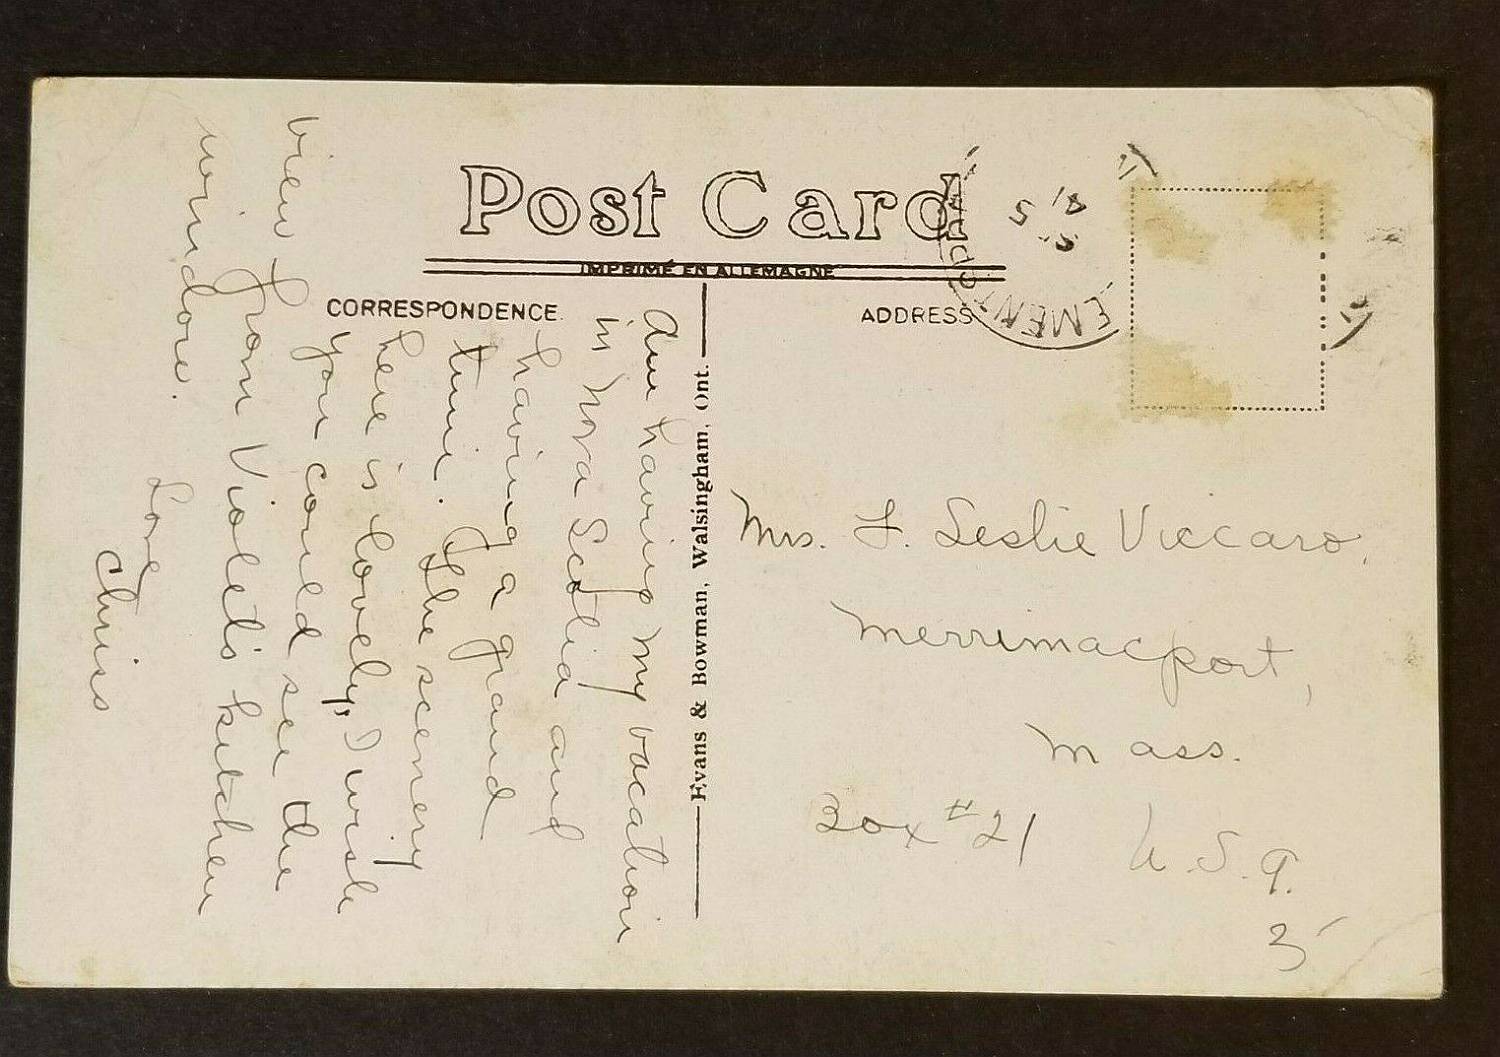 Post Card
IMPRIMÉ EN ALLEMAGNE
CORRESPONDENCE.
ADDRESS
Am having my vacation
in Nova Scotia and
having a grand
time. The scenery
here is lovely, I wish
you could see the
view from Violet's kitchen
window.
Love
Chriss
Evans & Bowman, Walsingham, Ont.
Mrs. F. Leslie Viccaro,
Merrimacport,
Mass.
Box #21
U.S.A.